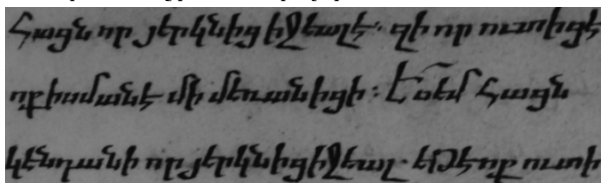 Հացն որ յերկնից իջեալ է. զի որ ուտիցէ
ոք ի սմանէ մի մեռանիցի: Ես եմ Հացն
կենդանի որ յերկնից իջեալ. եթէ ոք ուտի